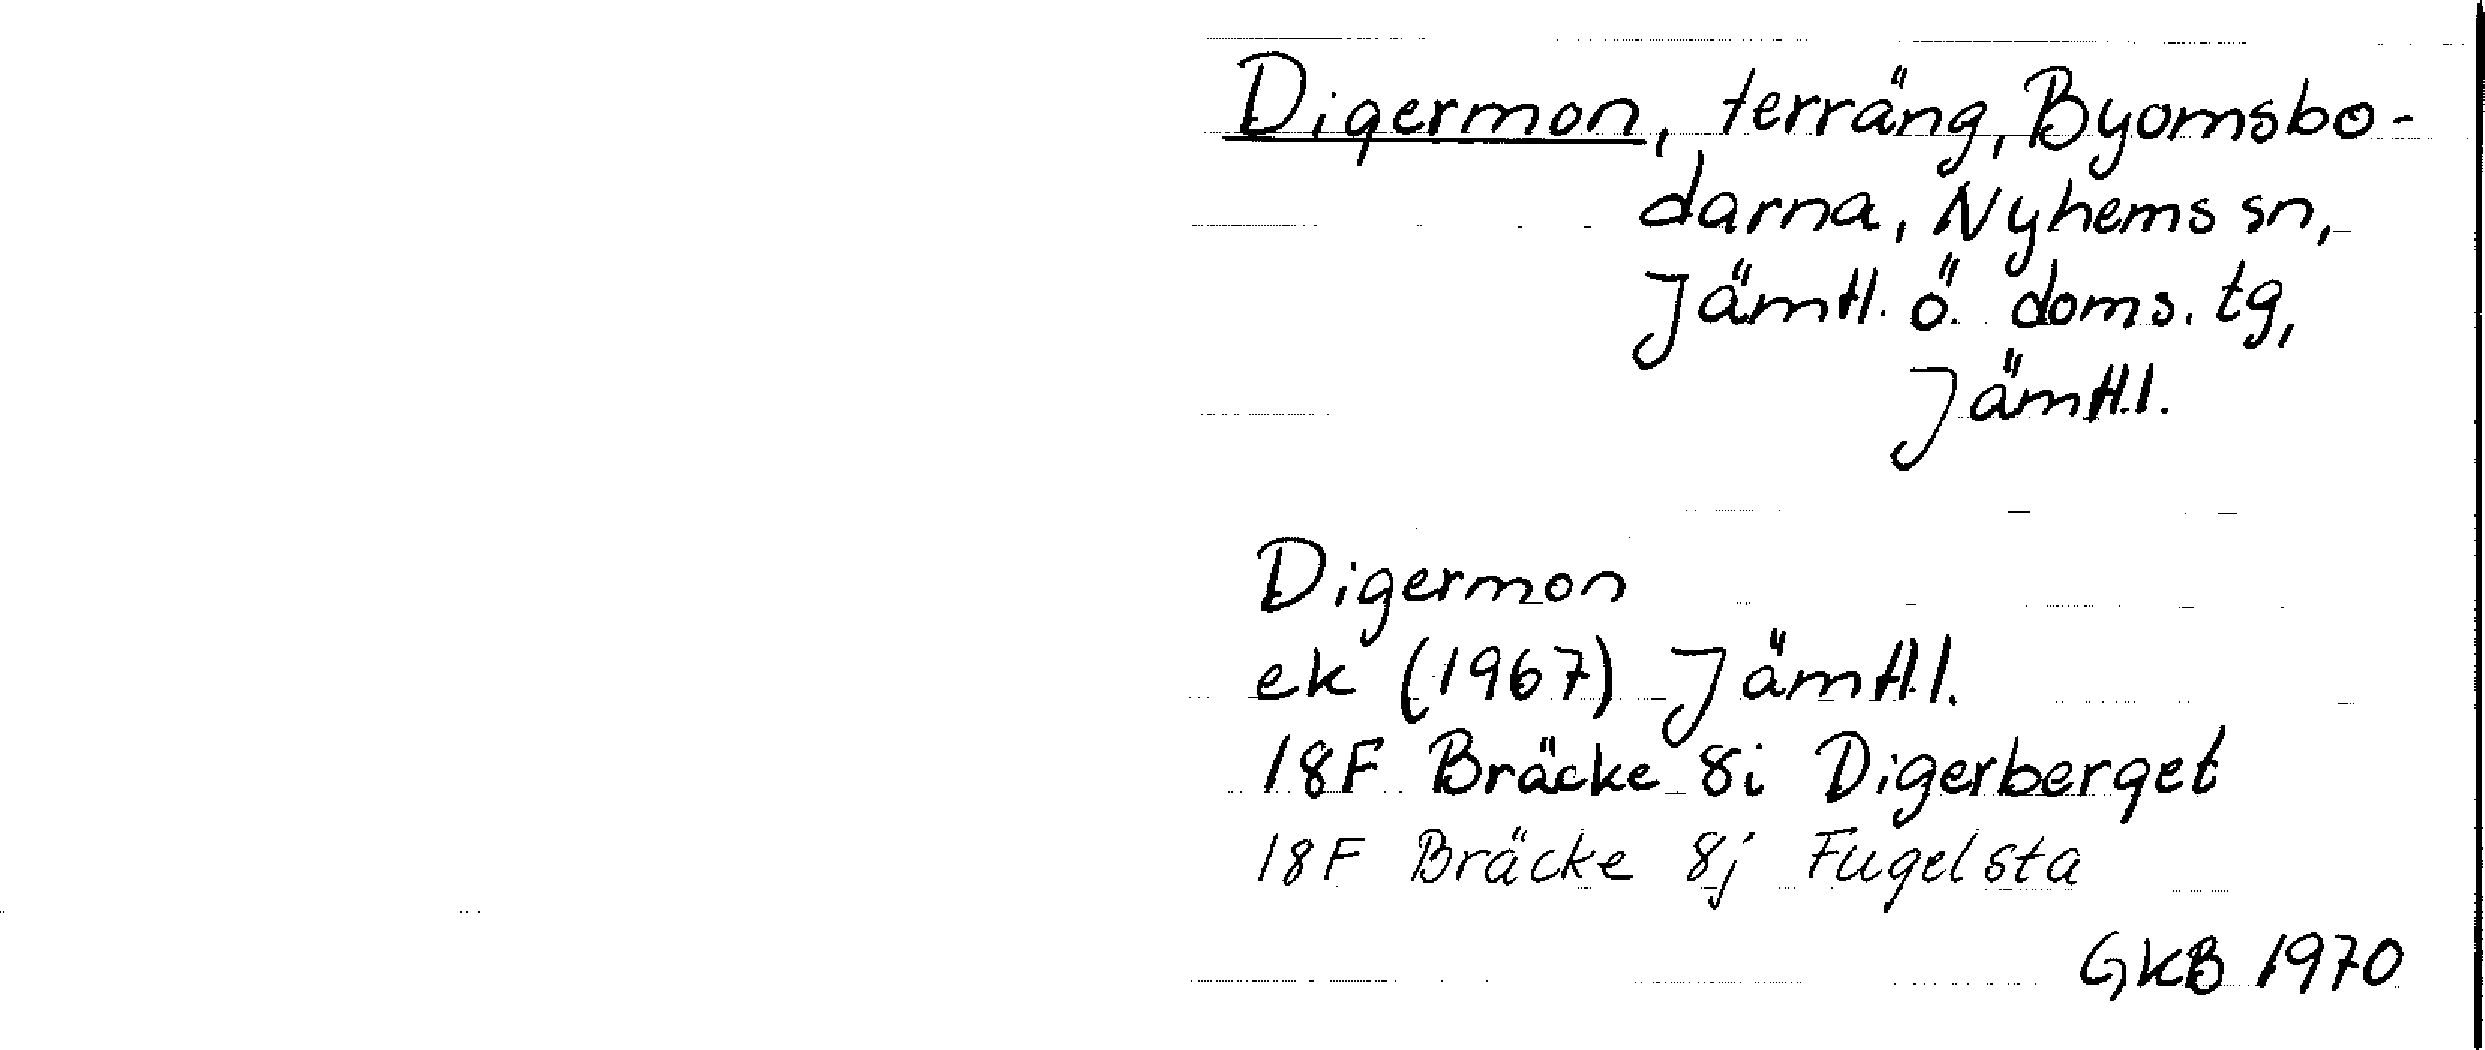 Digermon, terräng, Byomsbo-
darna, Nyhems sn,
Jämtl. ö. doms. tg,
Jämtl.l.
Digermon
ek (1967) Jämtl.l.
18F Bräcke 8i Digerberget
18F Bräcke 8j Fugelsta
GKB 1970